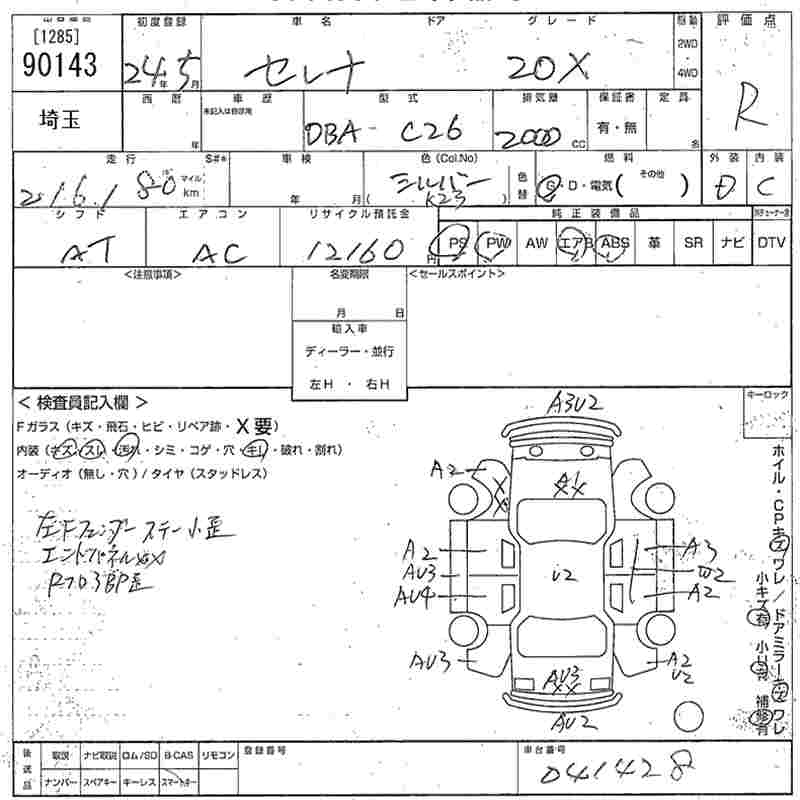 [1285]
90143
初度登録
24年5月
車名
セレナ
ドア
グレード
20X
2WD
・
4WD
評価点
R
埼玉
西暦
年
車歴
未記入は自家用
型式
DBA-C26
排気量
2000 CC
保証書
有・無
定員
名
走行
S#*
マイル
km
車検
年 月
色(Col.No)
シルバー
( K23 )
色替
燃料
G・D・電気( その他 )
外装
D
内装
C
シフト
AT
エアコン
AC
リサイクル預託金
12160円
純正装備品
PS PW AW エアB ABS 革 SR ナビ DTV
<注意事項>
名変期限
月 日
輸入車
ディーラー・並行
左H ・ 右H
<セールスポイント>
<検査員記入欄>
Fガラス(キズ・飛石・ヒビ・リペア跡・X要)
内装(キズ・スレ・汚れ・シミ・コゲ・穴・キレ・破れ・割れ)
オーディオ(無し・穴)/タイヤ(スタッドレス)
左Fフェンダーステー小歪
エンドパネル
Rフロア部歪
キーロック
A3U2
A2
A1
XX
X
X
A2
AU3
AU4
AU3
U2
A3
W2
A2
A2
U2
AU3
XX
AU2
ホイル・CPキズワレ/ドアミラーキズワレ
小キズ有 小凹有 補修有
後送品
取説 ナビ取説 ロム/SD B-CAS リモコン
ナンバー スペアキー キーレス スマートキー
登録番号
車台番号
041428